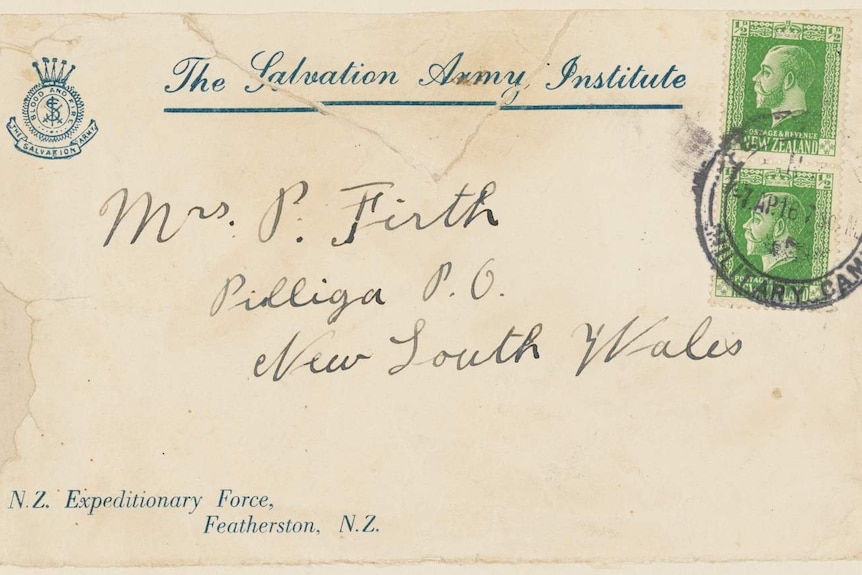 The Salvation Army Institute
BLOOD AND FIRE
THE SALVATION ARMY
½ ½
POSTAGE & REVENUE
NEW ZEALAND
½
AP.16
MILITARY CAM
Mrs. P. Firth
Pilliga P.O.
New South Wales
N.Z. Expeditionary Force,
Featherston, N.Z.